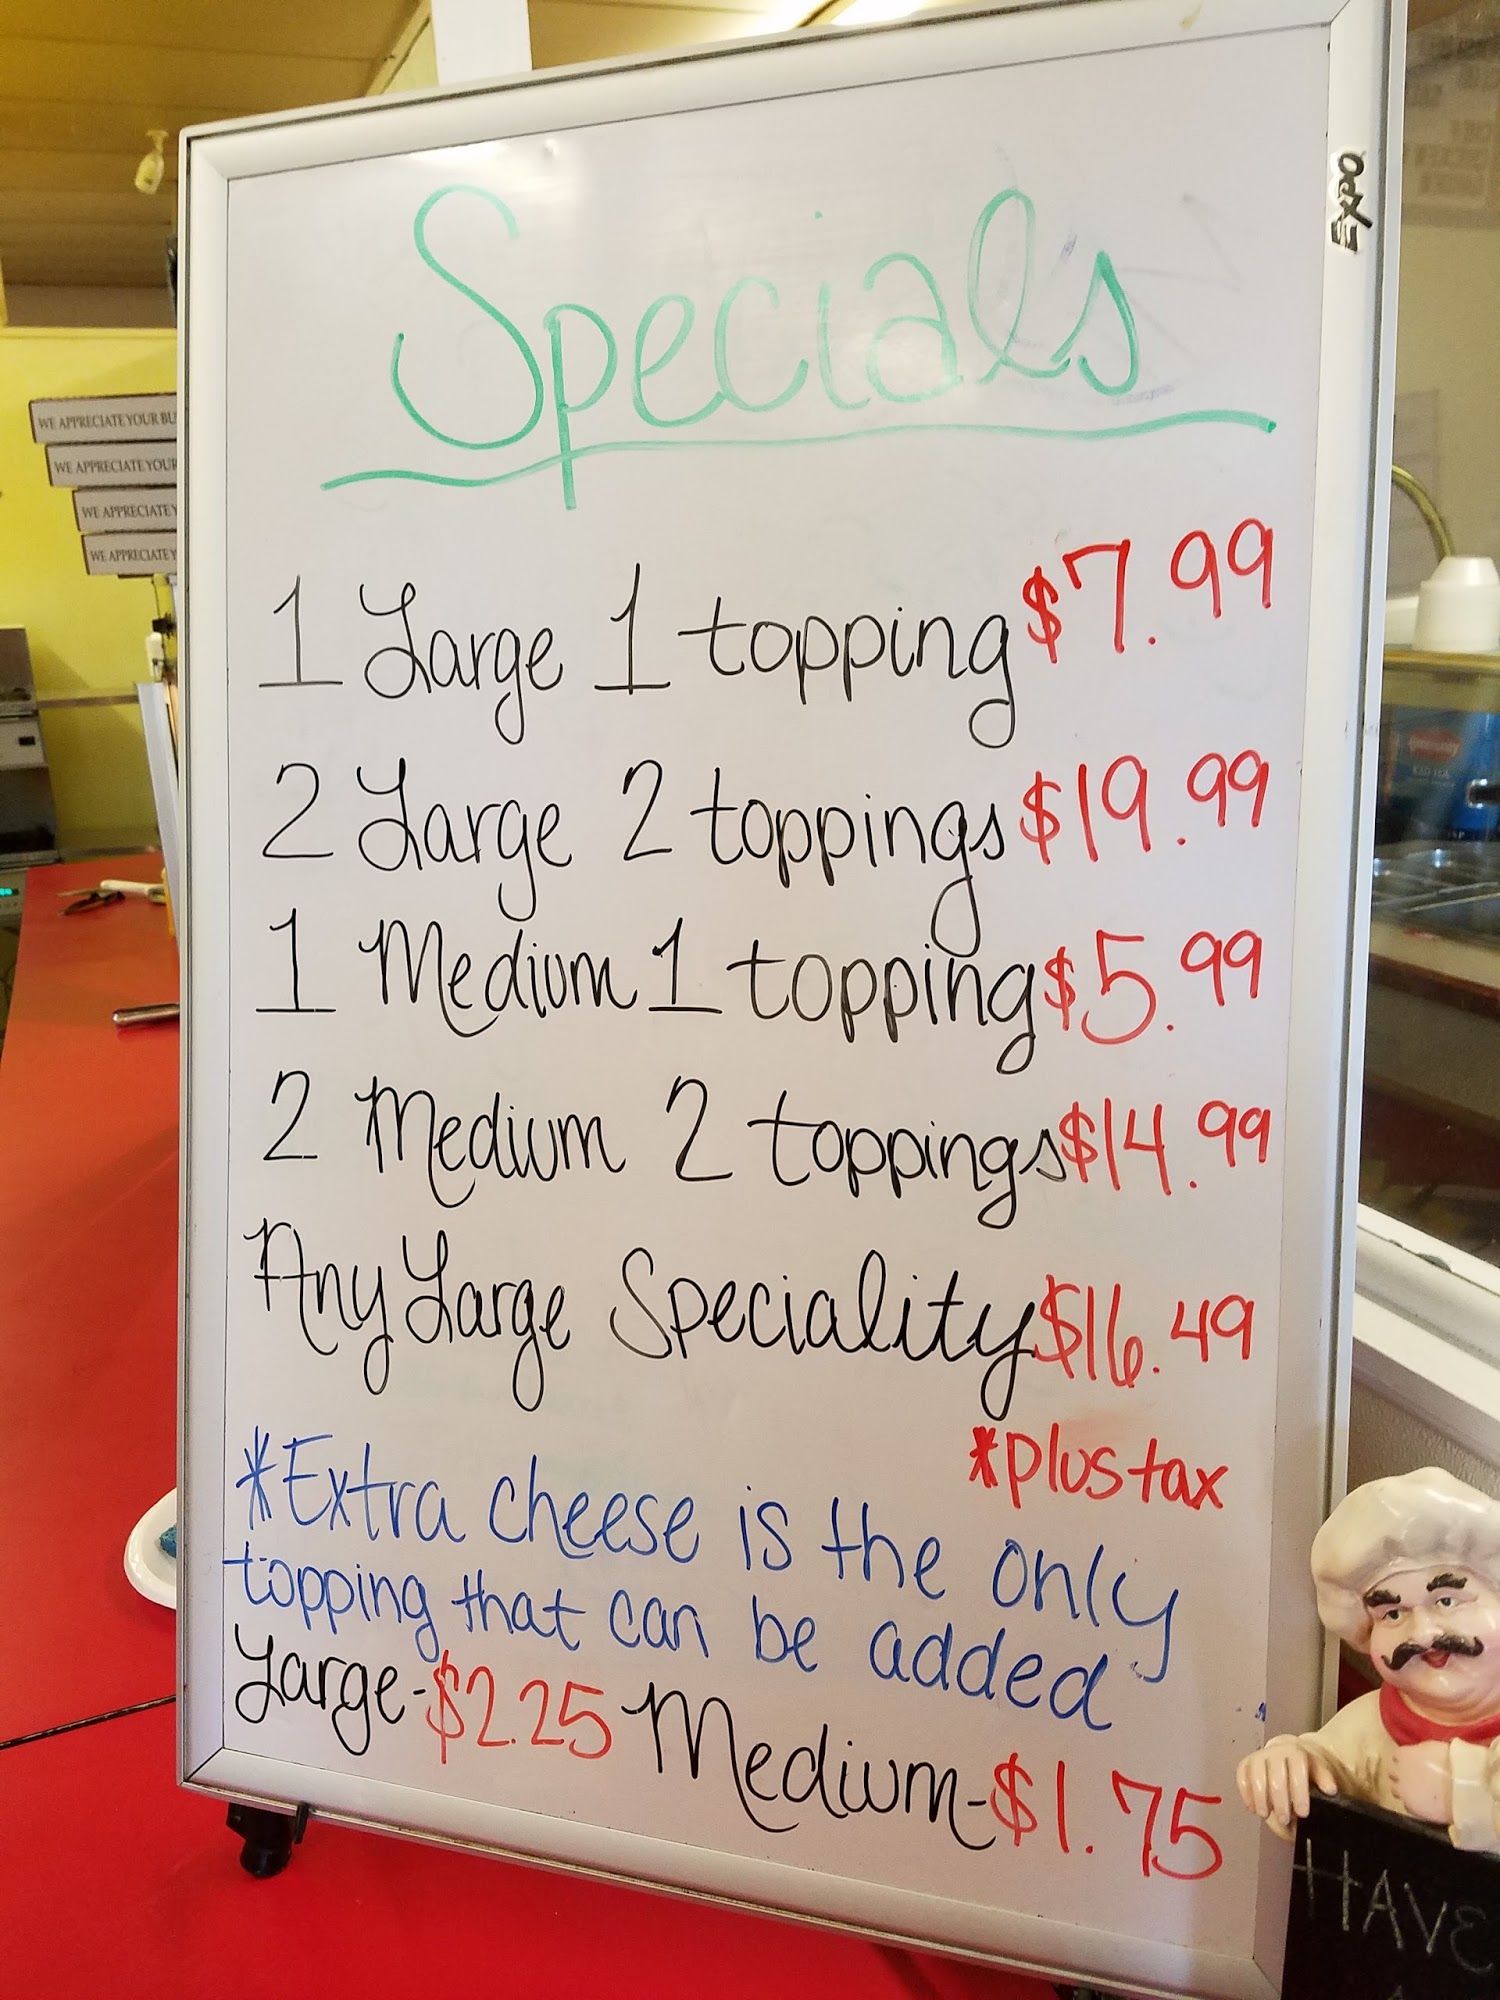 Specials
1 Large 1 topping $7.99
2 Large 2 toppings $19.99
1 Medium 1 topping $5.99
2 Medium 2 toppings $14.99
Any Large Speciality $16.49
*plus tax
*Extra cheese is the only
topping that can be added
Large-$2.25 Medium-$1.75
EXPO
WE APPRECIATE YOUR BU
WE APPRECIATE YOUR
WE APPRECIATE Y
WE APPRECIATE Y
HAVE